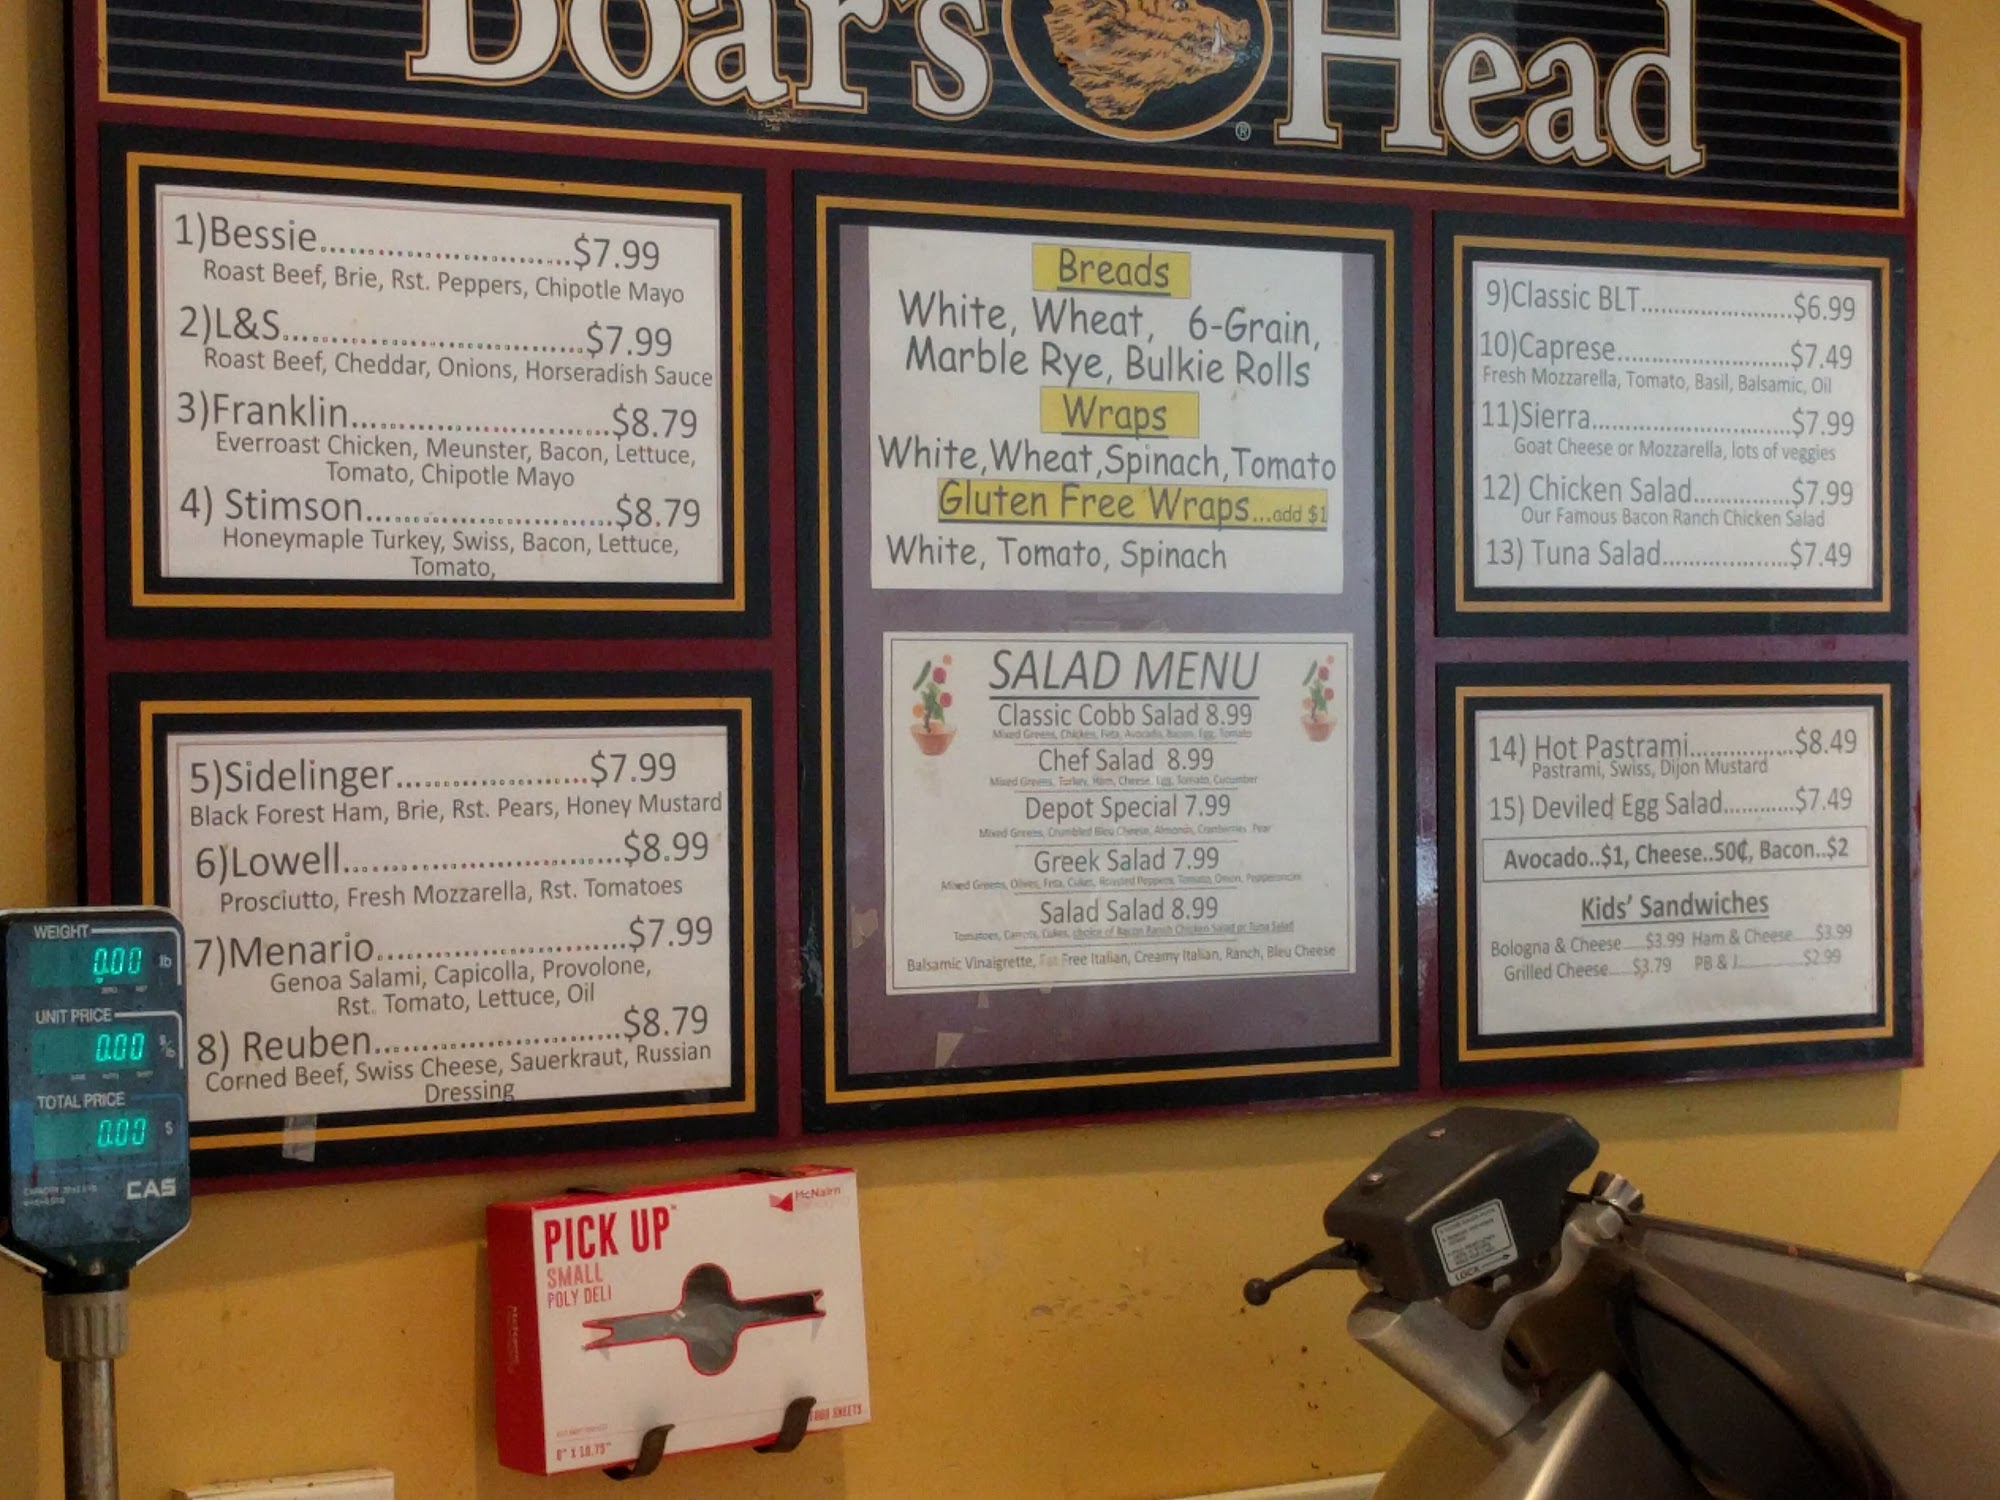 Boar's Head
®
1)Bessie.............................$7.99
Roast Beef, Brie, Rst. Peppers, Chipotle Mayo
2)L&S..................................$7.99
Roast Beef, Cheddar, Onions, Horseradish Sauce
3)Franklin.............................$8.79
Everroast Chicken, Meunster, Bacon, Lettuce,
Tomato, Chipotle Mayo
4) Stimson............................$8.79
Honeymaple Turkey, Swiss, Bacon, Lettuce,
Tomato,
5)Sidelinger......................$7.99
Black Forest Ham, Brie, Rst. Pears, Honey Mustard
6)Lowell...............................$8.99
Prosciutto, Fresh Mozzarella, Rst. Tomatoes
7)Menario............................$7.99
Genoa Salami, Capicolla, Provolone,
Rst. Tomato, Lettuce, Oil
8) Reuben............................$8.79
Corned Beef, Swiss Cheese, Sauerkraut, Russian
Dressing
Breads
White, Wheat, 6-Grain,
Marble Rye, Bulkie Rolls
Wraps
White,Wheat,Spinach,Tomato
Gluten Free Wraps...add $1
White, Tomato, Spinach
SALAD MENU
Classic Cobb Salad 8.99
Mixed Greens, Chicken, Feta, Avocado, Bacon, Egg, Tomato
Chef Salad 8.99
Mixed Greens, Turkey, Ham, Cheese, Egg, Tomato, Cucumber
Depot Special 7.99
Mixed Greens, Crumbled Bleu Cheese, Almonds, Cranberries Pear
Greek Salad 7.99
Mixed Greens, Olives, Feta, Cukes, Roasted Peppers, Tomato, Onion, Pepperoncini
Salad Salad 8.99
Tomatoes, Carrots, Cukes, choice of Bacon Ranch Chicken Salad or Tuna Salad
Balsamic Vinaigrette, Fat Free Italian, Creamy Italian, Ranch, Bleu Cheese
9)Classic BLT......................$6.99
10)Caprese.........................$7.49
Fresh Mozzarella, Tomato, Basil, Balsamic, Oil
11)Sierra.............................$7.99
Goat Cheese or Mozzarella, lots of veggies
12) Chicken Salad..............$7.99
Our Famous Bacon Ranch Chicken Salad
13) Tuna Salad...................$7.49
14) Hot Pastrami...............$8.49
Pastrami, Swiss, Dijon Mustard
15) Deviled Egg Salad...........$7.49
Avocado..$1, Cheese..50¢, Bacon..$2
Kids' Sandwiches
Bologna & Cheese.....$3.99 Ham & Cheese....$3.99
Grilled Cheese.....$3.79 PB & J............$2.99
WEIGHT
0.00 lb
UNIT PRICE
0.00 $/lb
TOTAL PRICE
0.00 $
CAS
McNairn
PICK UP™
SMALL
POLY DELI
SHEETS
8" X 10.75"
LOCK